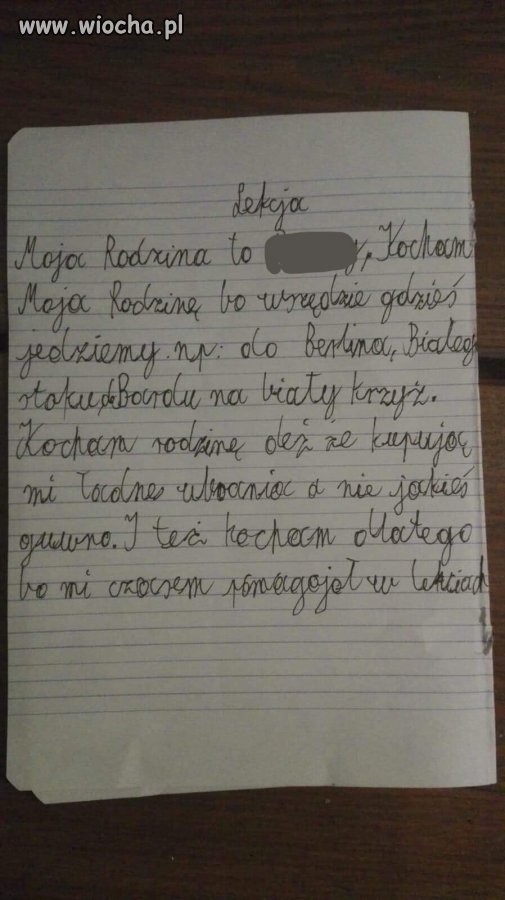 www.wiocha.pl
Lekcja
Moja Rodzina to Kocham
Moja Rodzinę bo wszędzie gdzieś
jedziemy np: do Berlina, Białego
stoku, do Bardu na biały krzyż.
Kocham rodzinę deż że kupując
mi ładne ubrania a nie jakieś
guwno. I też kocham dlatego
bo mi czasem pomagają w lekciach